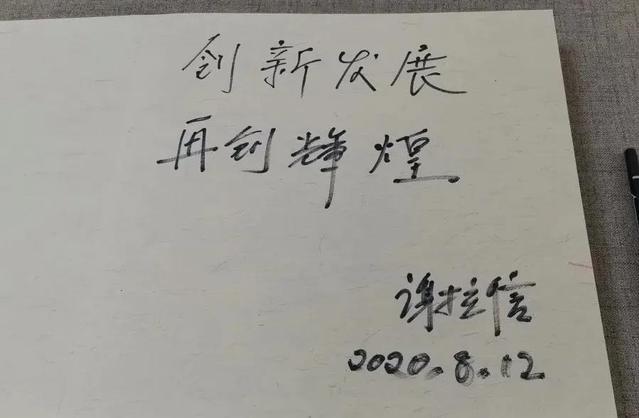 创新发展
再创辉煌
谢拉信
2020.8.12